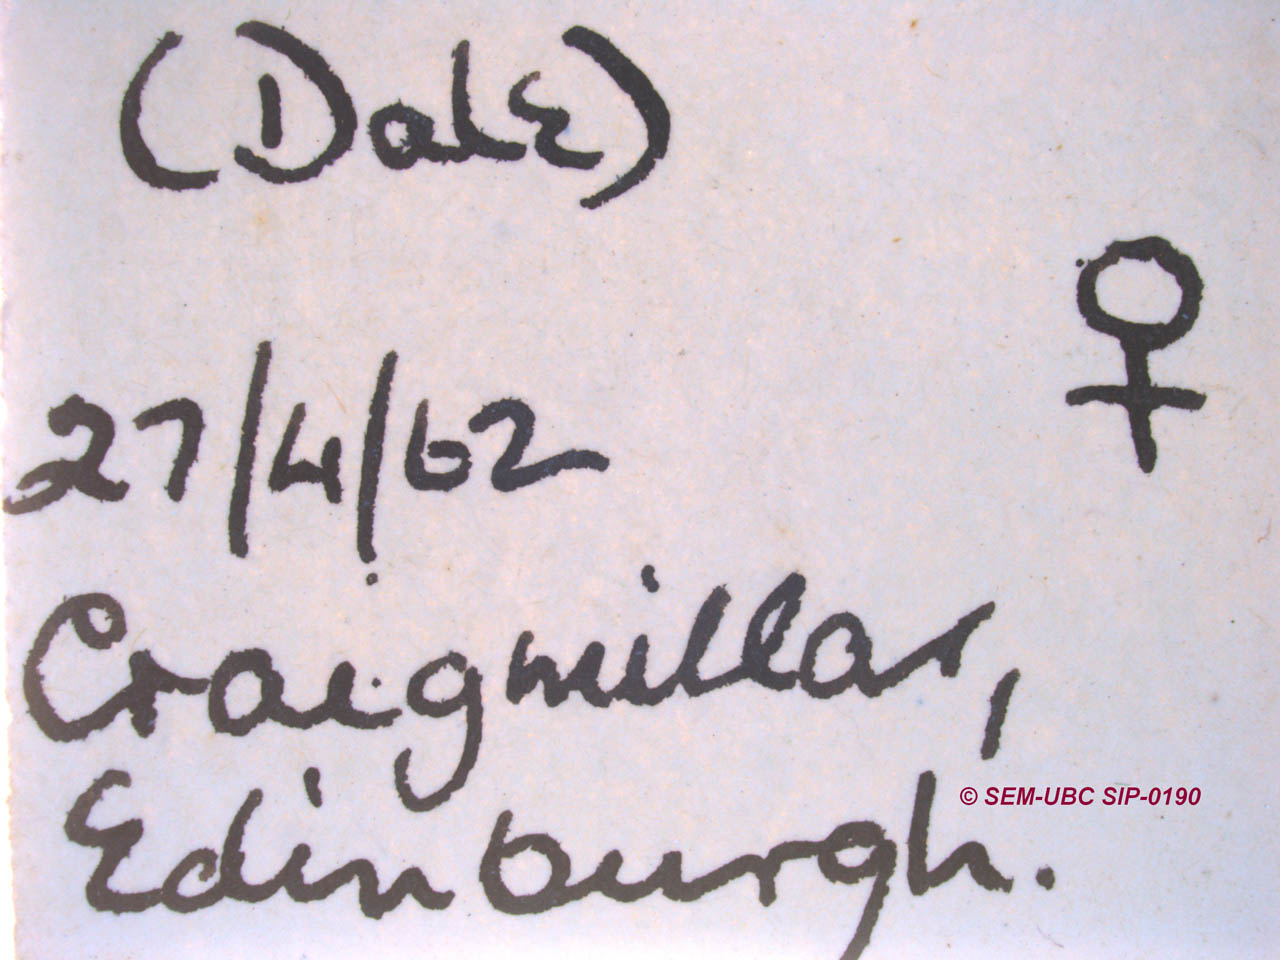 (Dale)
♀
27/4/62
Craigmillar,
Edinburgh.
© SEM-UBC SIP-0190